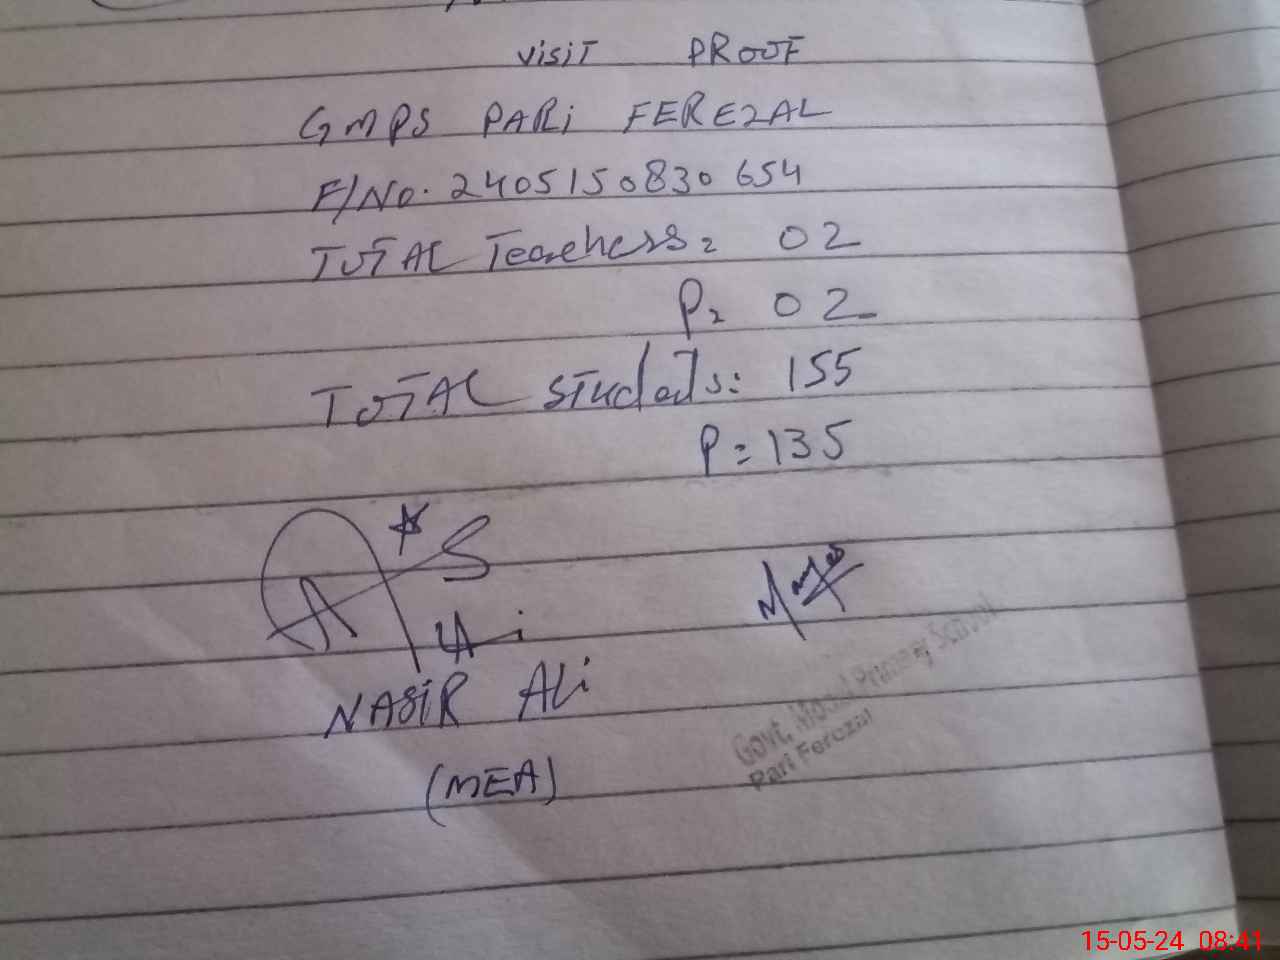 VISIT PROOF
GMPS PARi FEREZAL
F/No. 2405150830654
TOTAL Teachers = 02
P = 02
TOTAL students: 155
P = 135
NASIR ALi
(MEA)
Govt. Model Primary School
Pari Ferezal
15-05-24 08:41